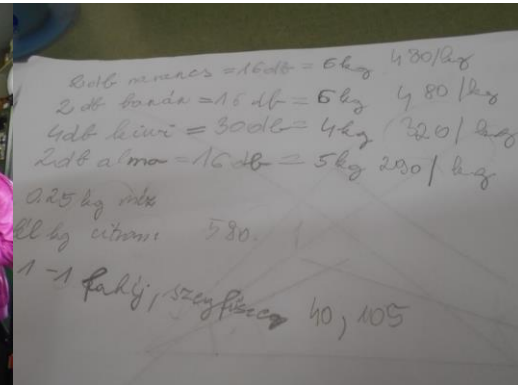 2db narancs = 16db = 6kg 430/kg
2 db banán = 16 db = 6kg 480/kg
4db kiwi = 30db = 4kg 320/kg
2db alma = 16 db = 5kg 290/kg
0.25 kg méz
fél kg citrom 580.
1-1 fahéj, szegfűszeg 40, 105